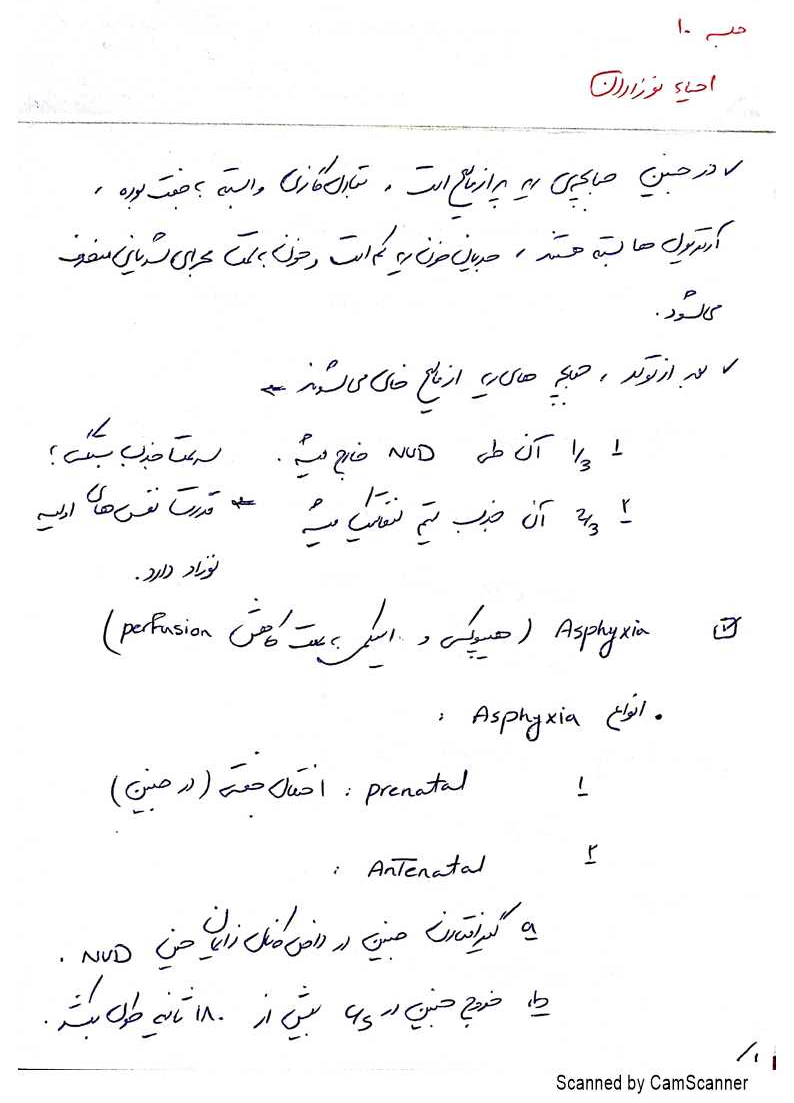 جلسه ۱۰
احیاء نوزادان
✓ در جنین حبابچه‌ی ریه پر از مایع است ، تبادل گازی وابسته به جفت بوده ،
آرتریول ها بسته هستند ، جریان خون ریه کم است و خون به سمت مجرای شریانی منحرف
می‌شود.
✓ بعد از تولد ، حبابچه های ریه از مایع خالی می‌شوند ←
۱ 1/3 آن طی NVD خارج میشه. سرعت جذب بستگی به
۲ 2/3 آن جذب سیستم لنفاتیک میشه ← قدرت نفس های اولیه
نوزاد دارد.
Asphyxia (هیپوکسی و ایسکمی به علت کاهش perfusion)
• انواع Asphyxia :
۱ prenatal : اختلال جفتی (در جنین)
۲ Antenatal :
a گیر افتادن جنین در داخل کانال زایمان حین NVD .
b خروج جنین در c/s بیش از ۱۸۰ ثانیه طول بکشد.
۱/
Scanned by CamScanner